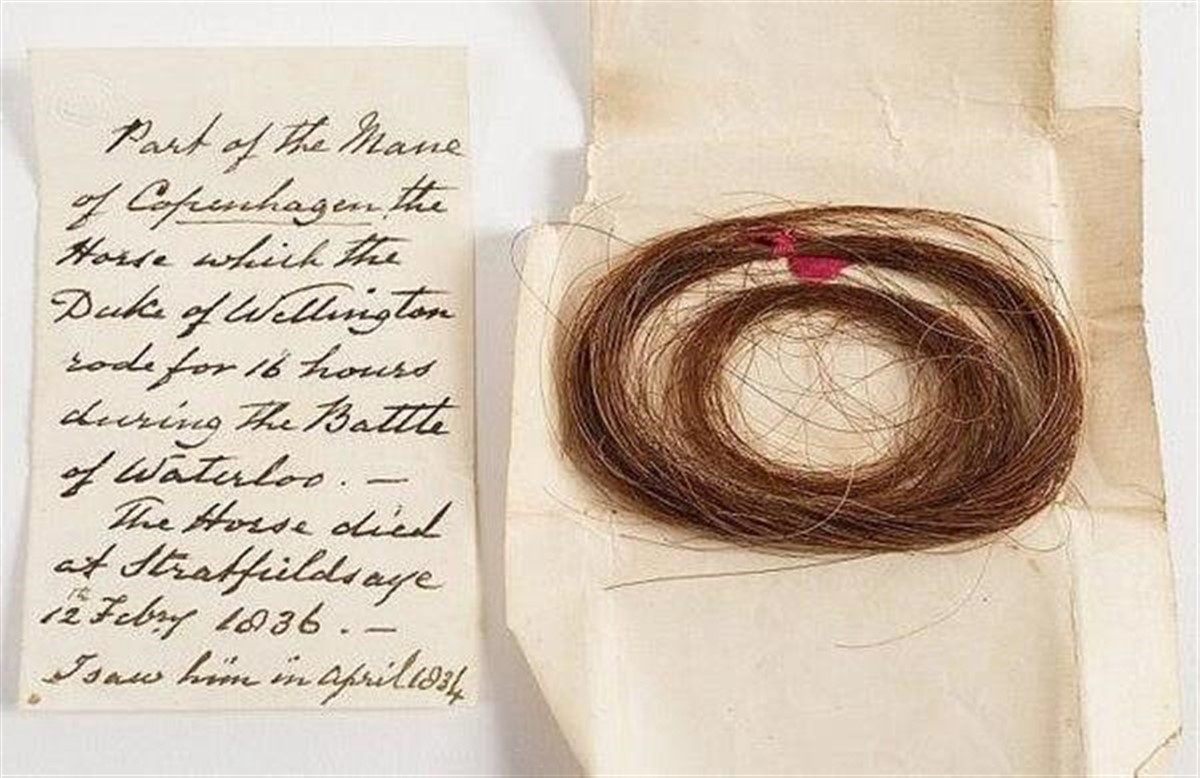 Part of the Mane
of Copenhagen the
Horse which the
Duke of Wellington
rode for 16 hours
during the Battle
of Waterloo. —
The Horse died
at Strathfieldsaye
12th Febry 1836. —
I saw him in April 1834